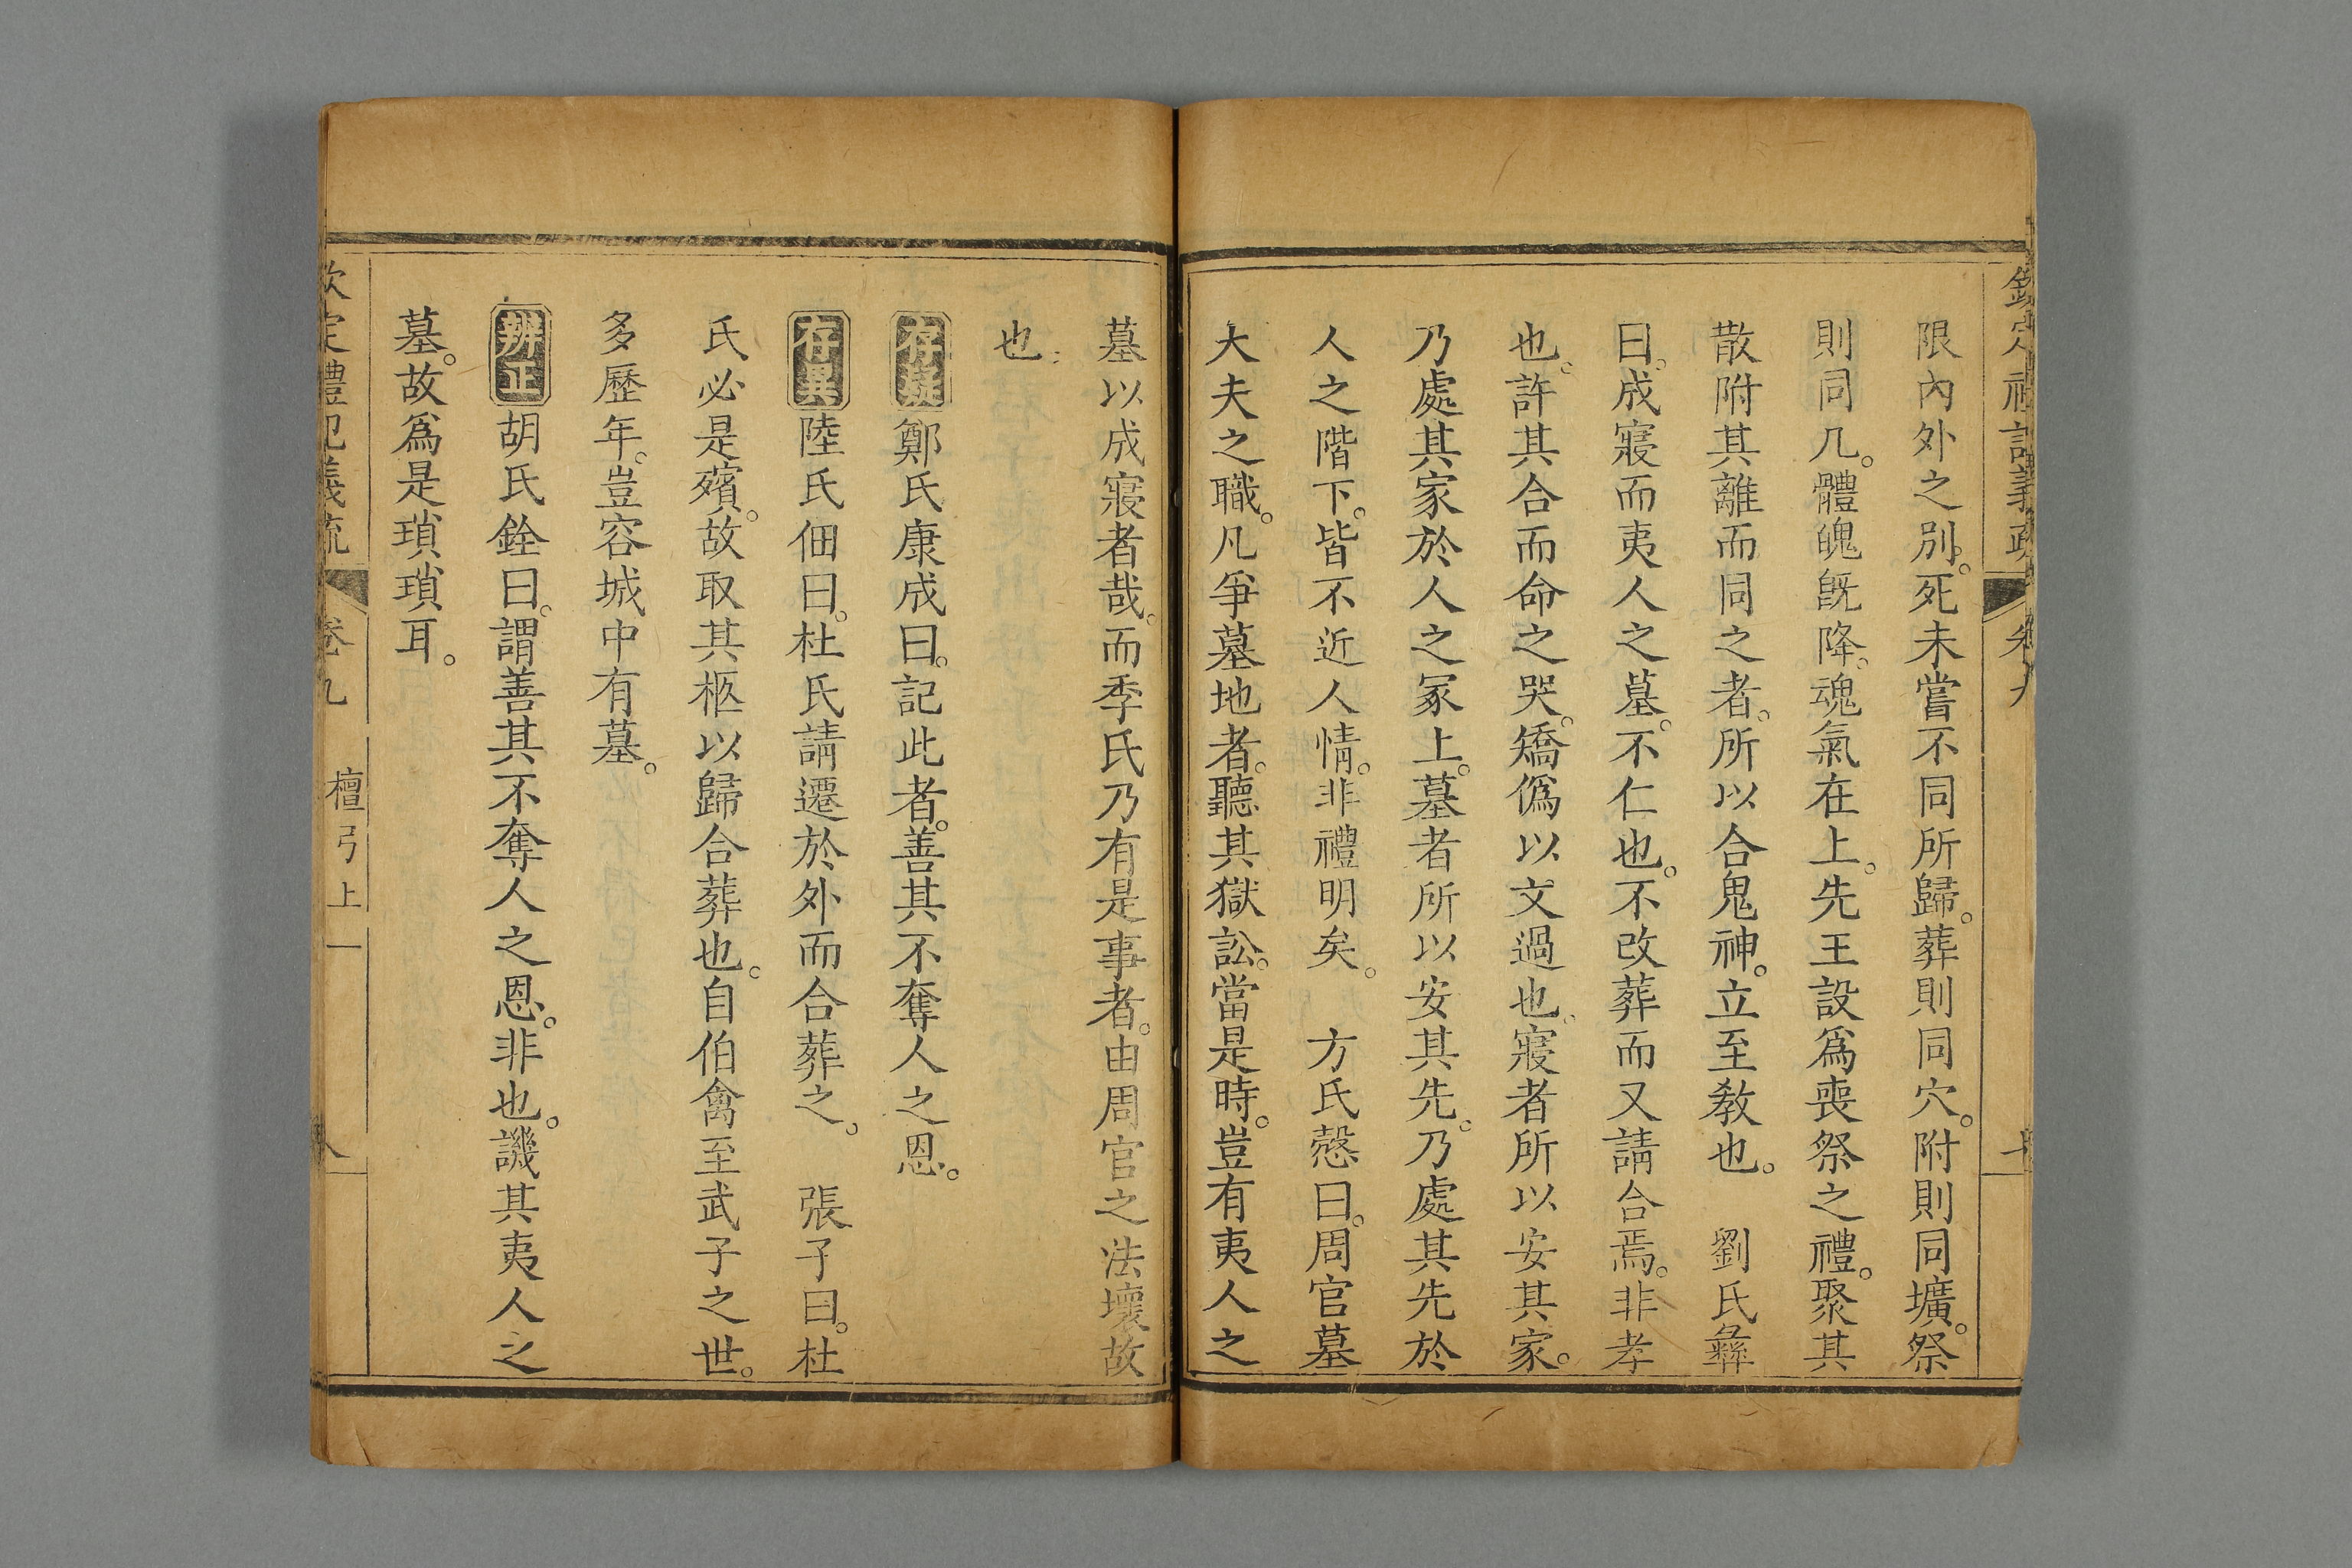 欽定禮記義疏 卷九
限內外之別。死未嘗不同所歸。葬則同穴。附則同壙。祭
則同几。體魄旣降。魂氣在上。先王設爲喪祭之禮。聚其
散附其離而同之者。所以合鬼神。立至敎也。 劉氏彝
曰。成寢而夷人之墓。不仁也。不改葬而又請合焉。非孝
也。許其合而命之哭。矯僞以文過也。寢者所以安其家。
乃處其家於人之冢上。墓者所以安其先。乃處其先於
人之階下。皆不近人情。非禮明矣。 方氏慤曰。周官墓
大夫之職。凡爭墓地者。聽其獄訟。當是時。豈有夷人之
墓以成寢者哉。而季氏乃有是事者。由周官之法壞故
也
存疑鄭氏康成曰。記此者。善其不奪人之恩。
存異陸氏佃曰。杜氏請遷於外而合葬之。 張子曰。杜
氏必是殯。故取其柩以歸合葬也。自伯禽至武子之世。
多歷年。豈容城中有墓。
辨正胡氏銓曰。謂善其不奪人之恩。非也。譏其夷人之
墓。故爲是瑣瑣耳。
欽定禮記義疏 卷九 檀弓上一